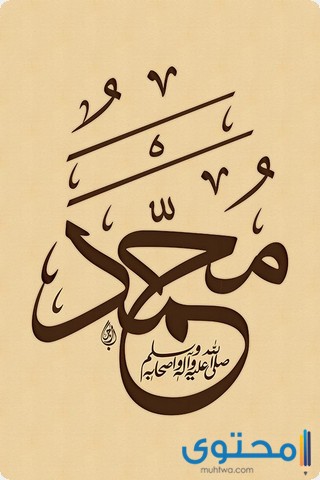 محمد
صلى الله عليه وآله وأصحابه وسلم
محتوى
muhtwa.com